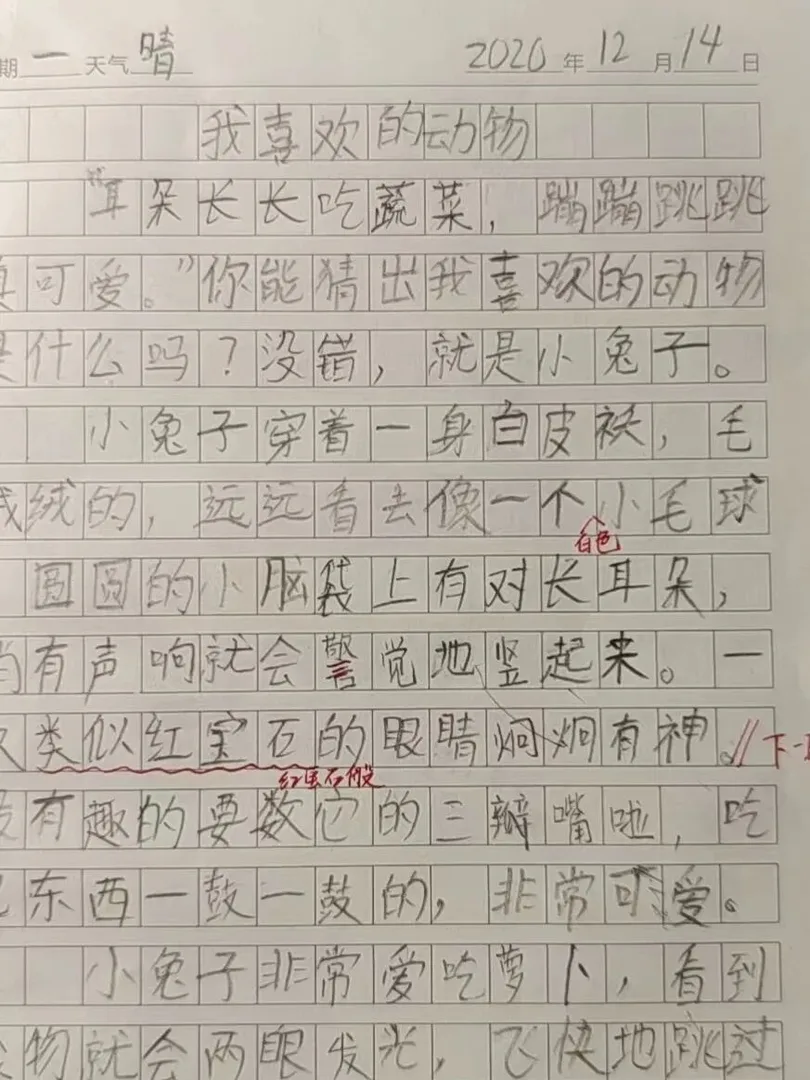 期一天气晴 2020年12月14日
我喜欢的动物
“耳朵长长吃蔬菜，蹦蹦跳跳
真可爱。”你能猜出我喜欢的动物
是什么吗？没错，就是小兔子。
小兔子穿着一身白皮袄，毛
绒的，远远看去像一个小毛球
白色
圆圆的小脑袋上有对长耳朵，
有声响就会警觉地竖起来。一
类似红宝石的眼睛炯炯有神。//下一
红宝石般
有趣的要数它的三瓣嘴啦，吃
东西一鼓一鼓的，非常可爱。
小兔子非常爱吃萝卜，看到
物就会两眼发光，飞快地跳过